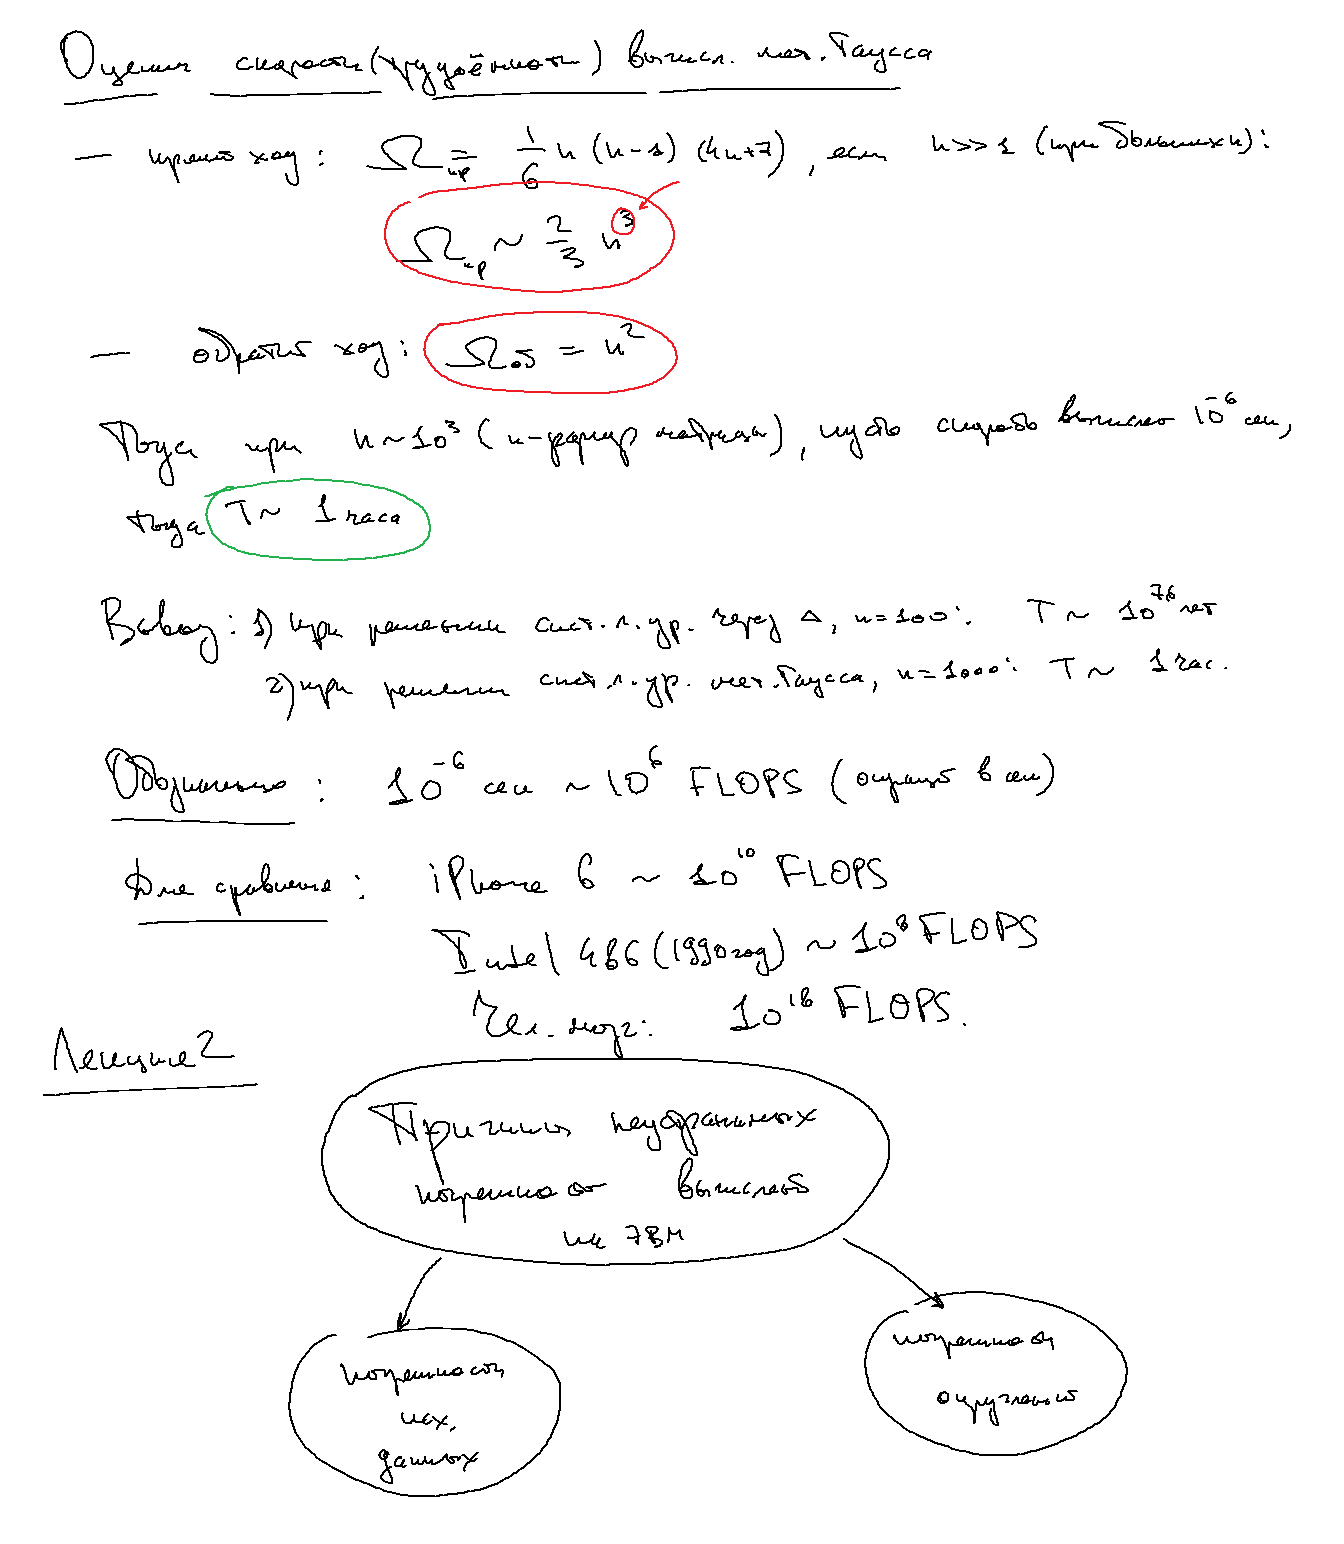 Оценка скорости (трудоёмкости) вычисл. мет. Гаусса
— прямой ход: Ω_пр = 1/6 n (n-1) (4n+7), если n>>1 (при больших n):
Ω_пр ~ 2/3 n³
— обратный ход: Ω_об = n²
Тогда при n~10³ (n-размер матрицы), пусть скорость вычислен 10⁻⁶ сек,
тогда T~ 1 часа
Вывод: 1) при решении сист. л. ур. через Δ, n=100: T ~ 10⁷⁶ лет
2) при решении сист. л. ур. мет. Гаусса, n=1000: T ~ 1 час.
Обозначение: 10⁻⁶ сек ~ 10⁶ FLOPS (операций в сек)
Для сравнения: iPhone 6 ~ 10¹⁰ FLOPS
Intel 486 (1990 год) ~ 10⁸ FLOPS
Чел. мозг: 10¹⁸ FLOPS.
Лекция 2
Причины неустранимых
погрешностей вычислений
на ЭВМ
погрешность
исх.
данных
погрешность
округлений